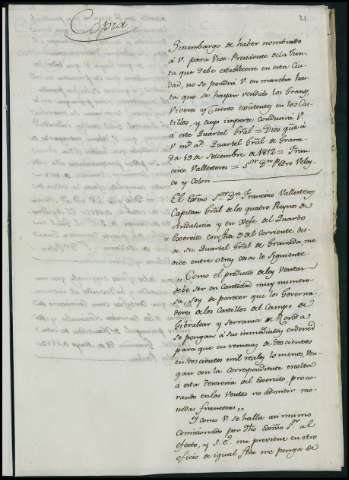 Copia
Sinembargo de haber nombrado
à V. para Vice-Presidente de la Jun-
ta que debe establecerse en esta Ciu-
dad, no se pondrá V. en marcha has-
ta que se hayan vendido los granos,
Viveres y Cueros existentes en los Cas-
tillos, y cuyo importe conducirá V.
à este Quartel Gral = Dios gue à
V. ms. as. Quartel Gral de Grana-
da 19 de Setiembre de 1812 = Fran-
cisco Vallesteros = Sor. Dn. Pedro Velas-
co y Colon
El Exmo. Sor. Dn. Francisco Vallesteros
Capitan Gral de los quatro Reynos de
Andalucia y en Gefe del Quarto
Exercito con fha 3 del corriente des-
de su Quartel Gral de Granada me
dice entre otras cosas lo siguiente
"Como el producto de las Ventas
debe ser en cantidad muy numero-
sa soy de parecer que los Governa-
dores de los Castillos del Campo de
Gibraltar y Serrania de Ronda
se pongan à sus inmediatas ordenes
para que en remesas de doscientos
en doscientos mil reales lo menos ven-
gan con la correspondiente escolta
à esta Tesoreria del Exercito procu-
rando en las Ventas no admitir mo-
nedas francesas,,
Y como V. se halla en mismo
comisionado por dho al
efecto, y S. E. me previene en otro
oficio de igual fha me ponga de